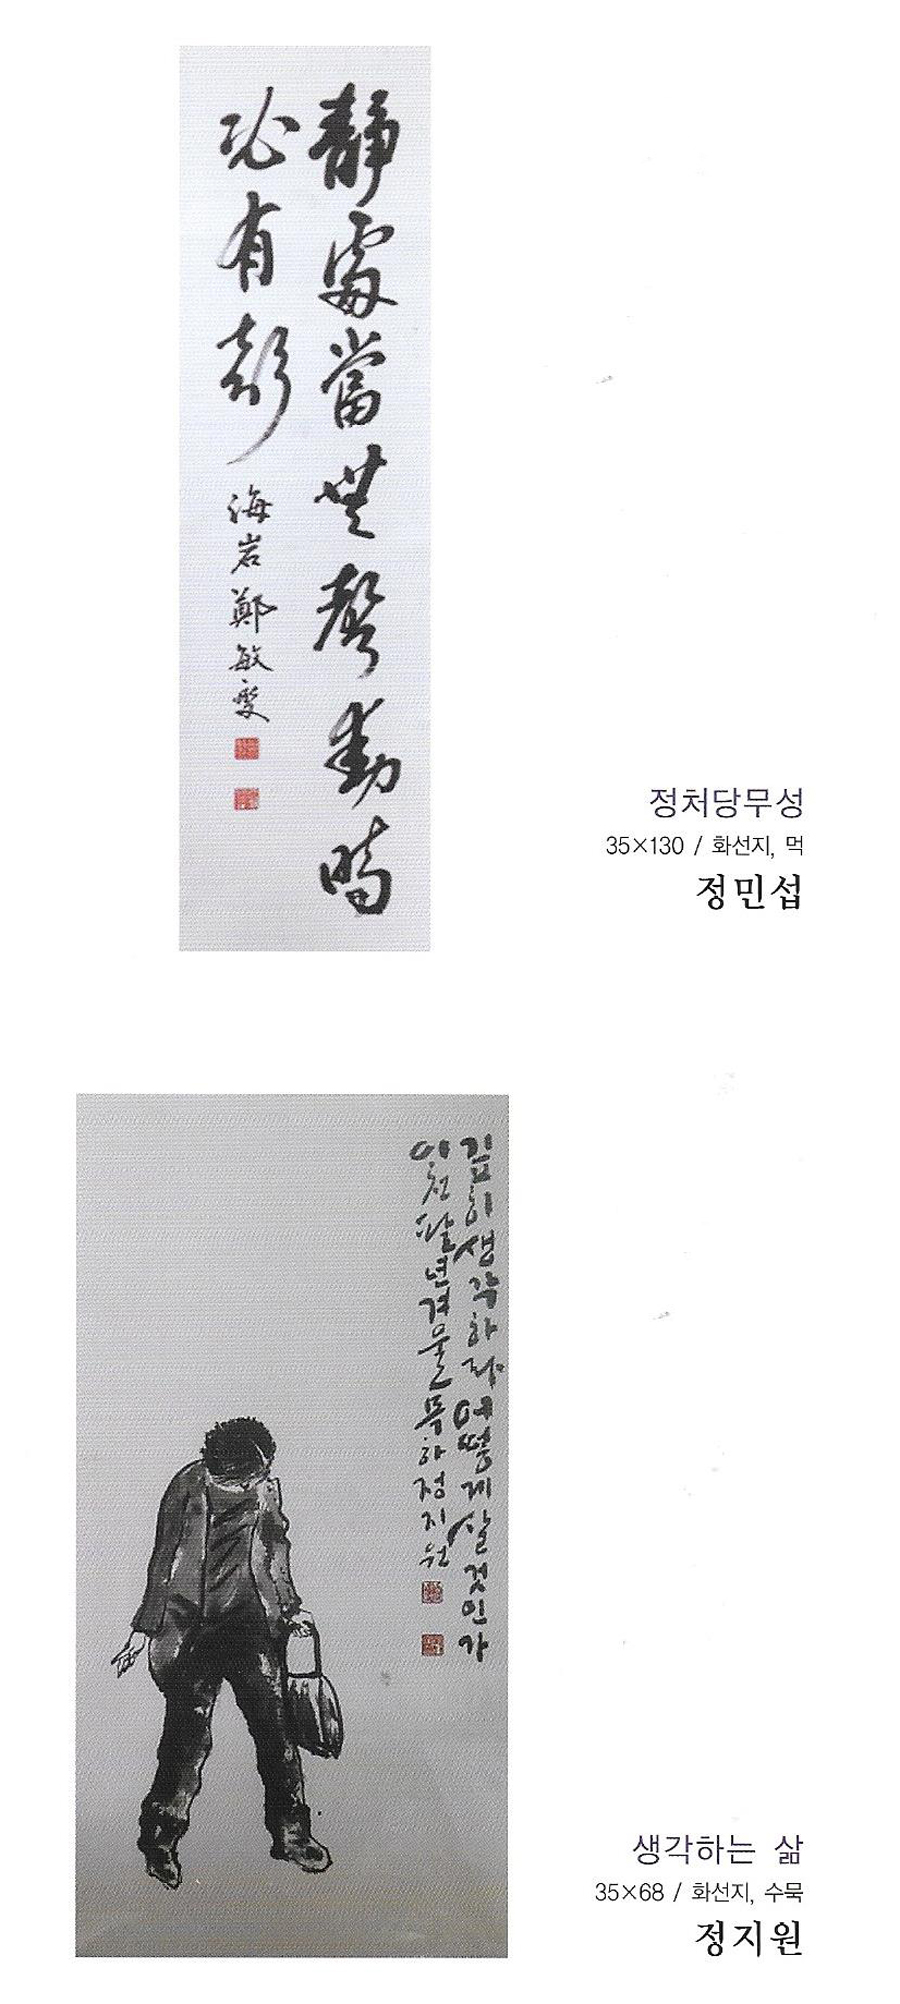 靜處當無聲動時
必有彭
海岩鄭敏燮
정처당무성
35×130 / 화선지, 먹
정민섭
깊이생각하라어떻게살것인가
이천팔년겨울묵하정지원
생각하는 삶
35×68 / 화선지, 수묵
정지원